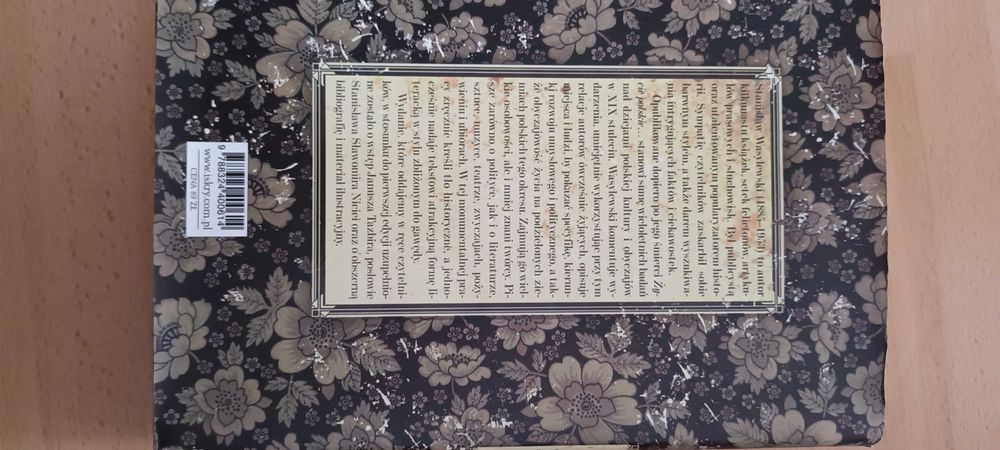 Stanisław Wasylewski (1885–1953) to autor
kilkunastu książek, setek felietonów, artyku-
łów prasowych i słuchowisk. Był publicystą
oraz utalentowanym popularyzatorem histo-
rii. Sympatię czytelników zaskarbił sobie
barwnym stylem, a także darem wyszukiwa-
nia intrygujących faktów i ciekawostek.
Opublikowane dopiero po jego śmierci Ży-
cie polskie... stanowi sumę wieloletnich badań
nad dziejami polskiej kultury i obyczajów
w XIX stuleciu. Wasylewski komentuje wy-
darzenia, umiejętnie wykorzystując przy tym
relacje autorów ówcześnie żyjących, opisuje
miejsca i ludzi, by pokazać specyfikę, kierun-
ki rozwoju umysłowego i politycznego, a tak-
że obyczajowość życia na podzielonych zie-
miach polskich tego okresu. Zajmują go wiel-
kie osobowości, ale i mniej znani twórcy. Pi-
sze zarówno o polityce, jak i o literaturze,
sztuce, muzyce, teatrze, zwyczajach, poży-
wieniu i ubiorach. W tej iście monumentalnej pra-
cy zręcznie kreśli tło historyczne, a jedno-
cześnie nadaje tekstowi atrakcyjną formę li-
teracką w stylu zbliżonym do gawędy.
Wydanie, które oddajemy w ręce czytelni-
ków, w stosunku do pierwszej edycji uzupełnio-
ne zostało o wstęp Janusza Tazbira, posłowie
Stanisława Sławomira Niciei oraz o obszerną
bibliografię i materiał ilustracyjny.
9 788324 400614
www.iskry.com.pl
CENA 89 ZŁ